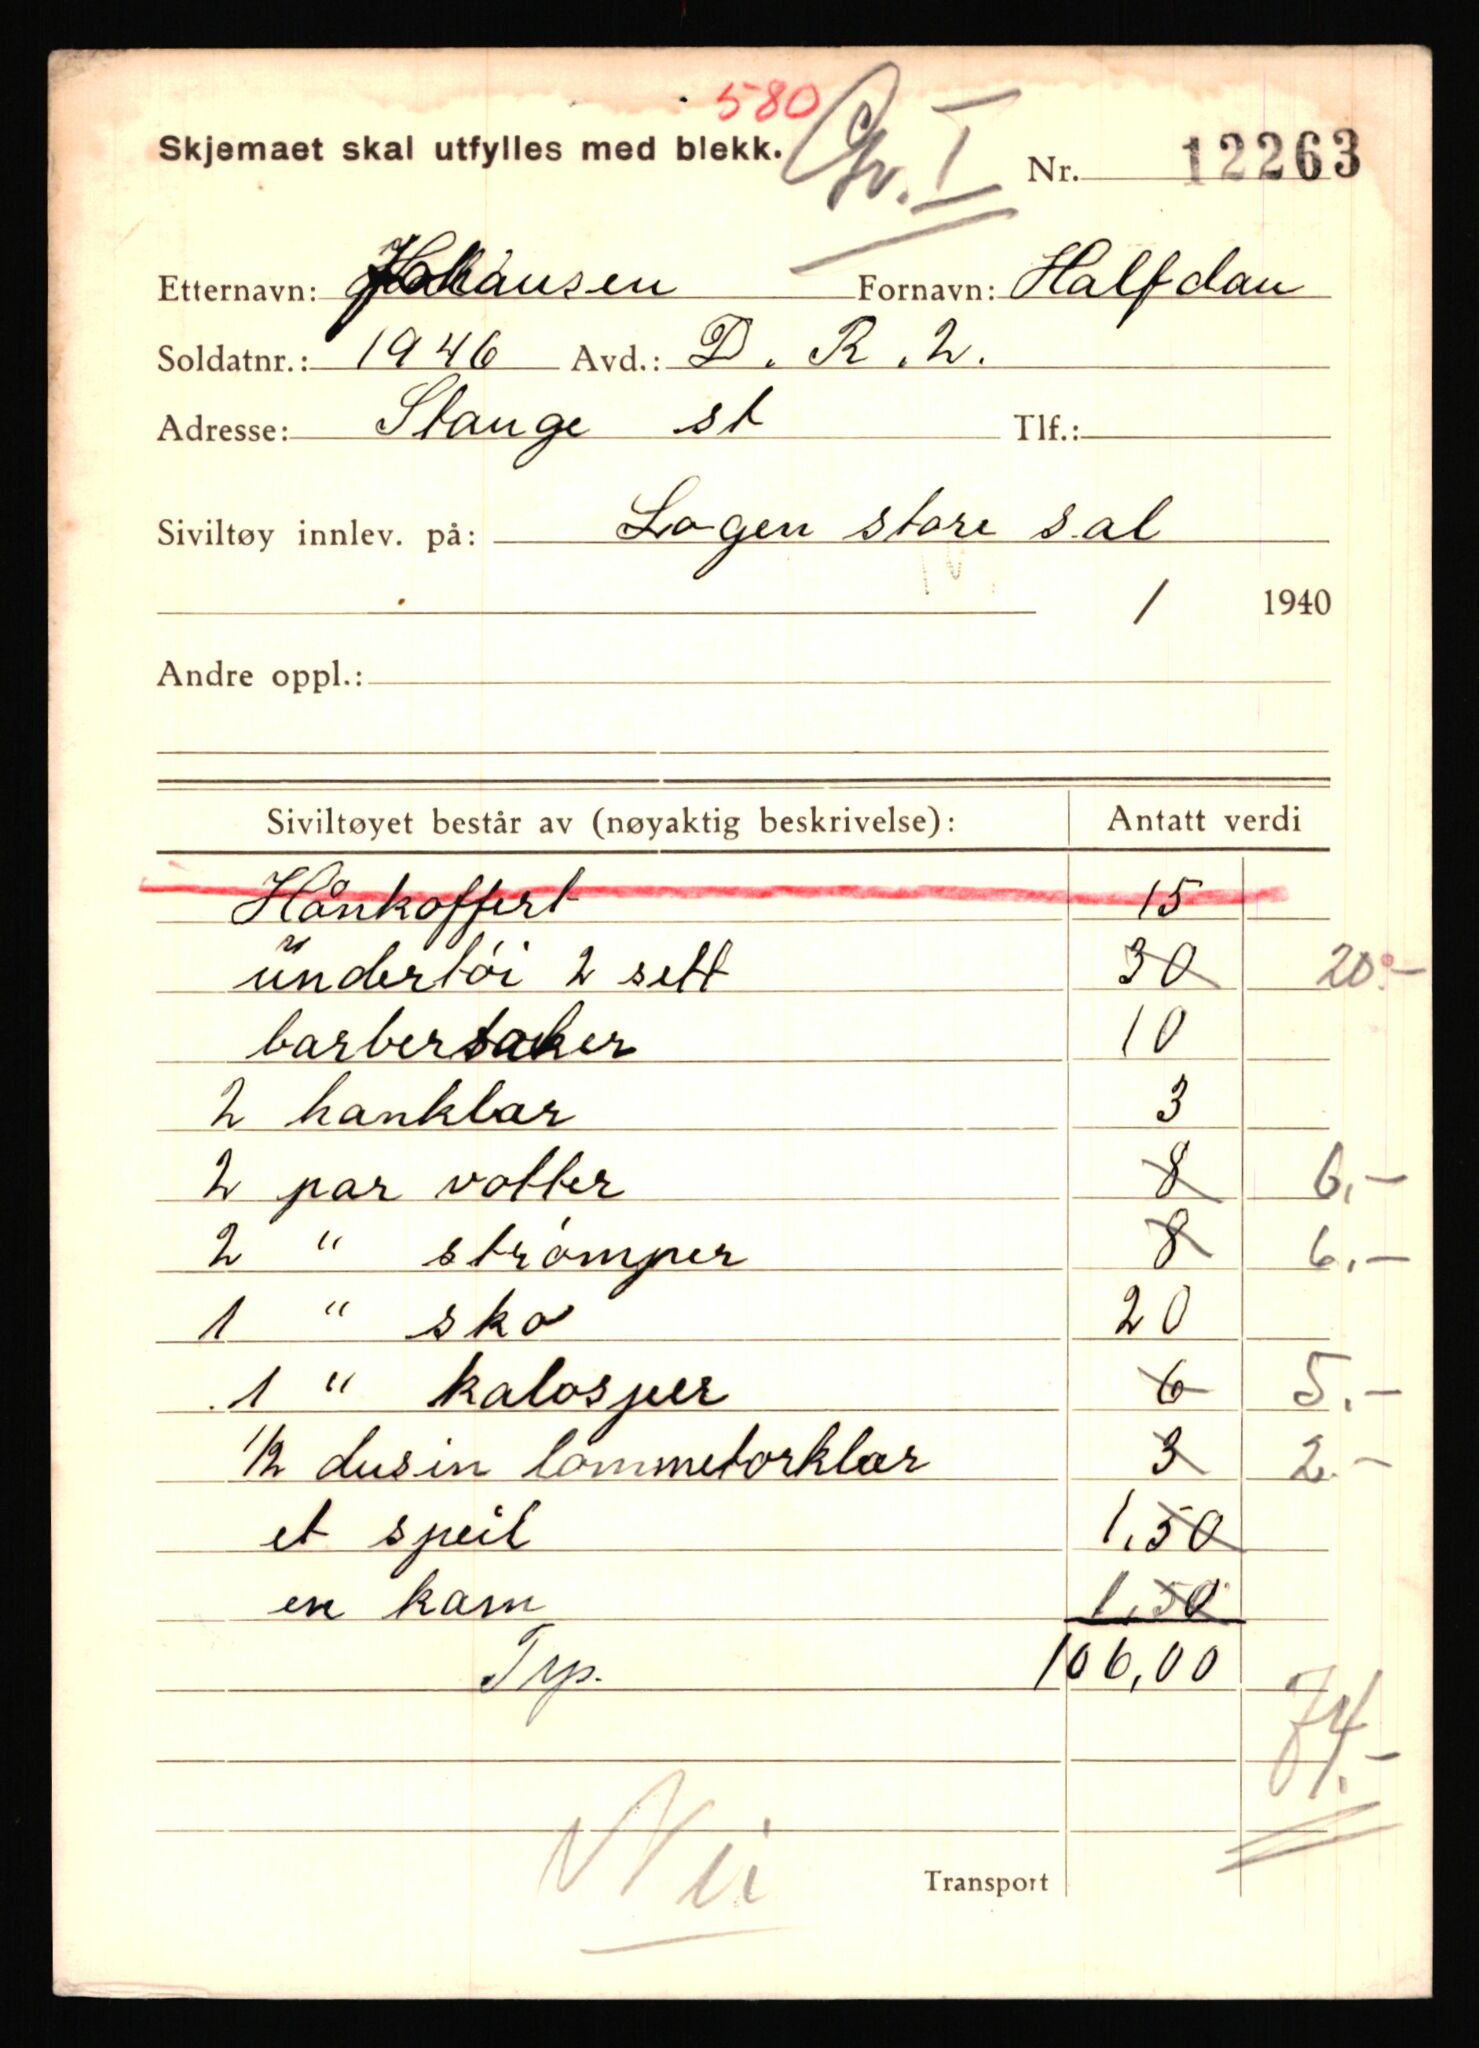 580
Skjemaet skal utfylles med blekk. Gr. I Nr. 12263
Etternavn: Johansen Fornavn: Halfdan
Soldatnr.: 1946 Avd.: D. R. 2.
Adresse: Stange st Tlf.:
Siviltøy innlev. på: Logen store sal
/ 1940
Andre oppl.:
Siviltøyet består av (nøyaktig beskrivelse): Antatt verdi
Hånkoffert 15
undertöi 2 sett 30 20.-
barbersaker 10
2 hanklær 3
2 par votter 8 6,-
2 " strömper 8 6,-
1 " sko 20
1 " kalosjer 6 5.-
1/2 dusin lommetorklær 3 2.-
et speil 1,50
en kam 1,50
106,00
74.-
Transport